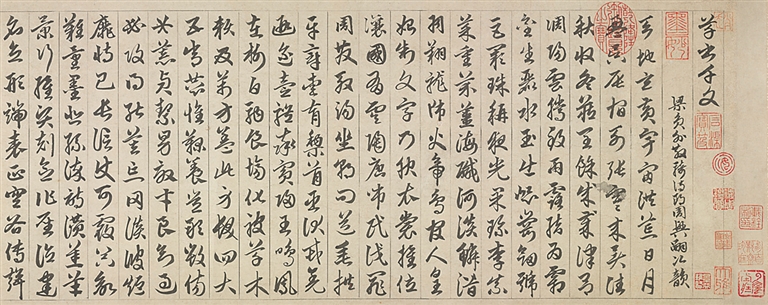 草書千文
梁員外散騎侍郎周興嗣次韻
天地玄黃宇宙洪荒日月
盈昃辰宿列張寒來暑往
秋收冬藏閏餘成歲律呂
調陽雲騰致雨露結為霜
金生麗水玉出崑崗劍號
巨闕珠稱夜光果珍李柰
菜重芥薑海鹹河淡鱗潛
羽翔龍師火帝鳥官人皇
始制文字乃服衣裳推位
讓國有虞陶唐弔民伐罪
周發殷湯坐朝問道垂拱
平章愛育黎首臣伏戎羌
遐邇壹體率賓歸王鳴鳳
在樹白駒食場化被草木
賴及萬方蓋此身髮四大
五常恭惟鞠養豈敢毀傷
女慕貞潔男效才良知過
必改得能莫忘罔談彼短
靡恃己長信使可覆器欲
難量墨悲絲染詩讚羔羊
景行維賢剋念作聖德建
名立形端表正空谷傳聲